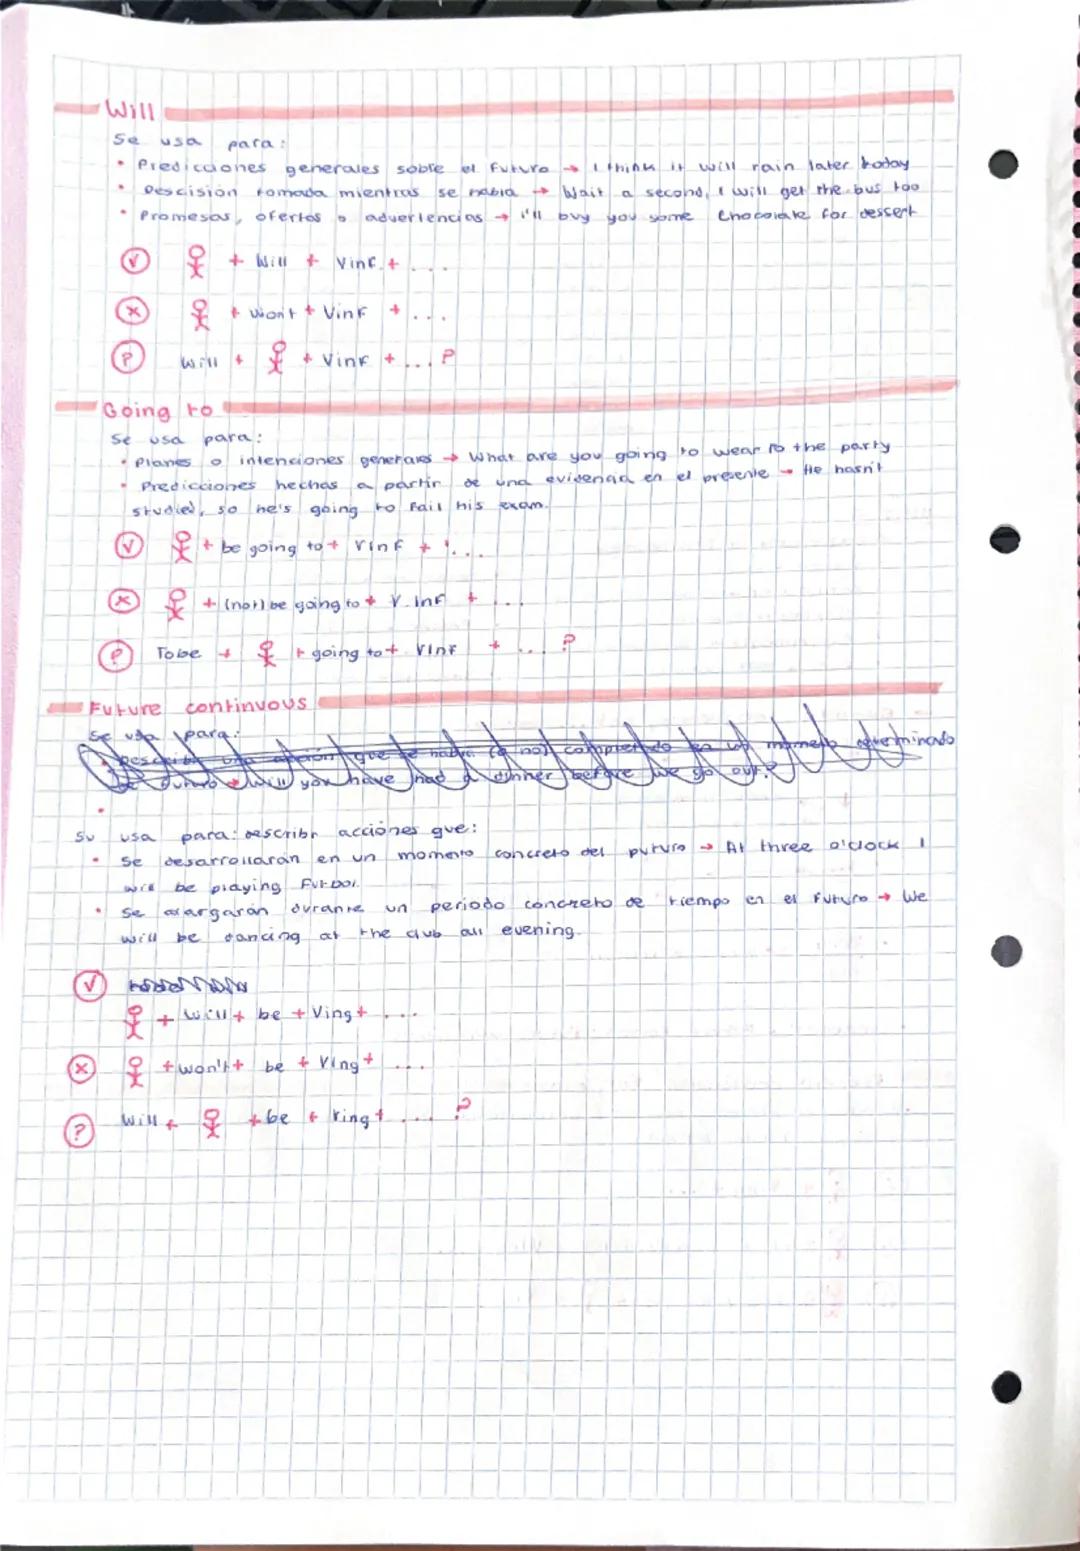 Will
Se usa para:
• Predicciones generales sobre el futuro → I think it will rain later today
• Descisión tomada mientras se habla → Wait a second, I will get the bus too
• Promesas, ofertas o advertencias → i'll buy you some chocolate for dessert
✓ + Will + Vinf. + ...
x + won't + Vinf + ...
? Will + + Vinf + ... ?
Going to
Se usa para:
• Planes o intenciones generales → What are you going to wear to the party
• Predicciones hechas a partir de una evidencia en el presente → He hasn't
studied, so he's going to fail his exam.
✓ + be going to + Vinf + ...
x + (not) be going to + V.inf + ...
? To be + + going to + Vinf + ... ?
Future continuous
Se usa para:
que se habrá (o no) completado en un momento determinado
de futuro → Will you have had a dinner before we go out?
•
Su usa para: describr acciones que:
• Se desarrollarán en un momento concreto del puturo → At three o'clock I
will be playing Futbol.
• Se alargarán durante un periodo concreto de tiempo en el futuro → We
will be dancing at the club all evening.
✓
+ will + be + Ving + ...
x + won't + be + Ving + ...
? Will + + be + Ving + .... ?